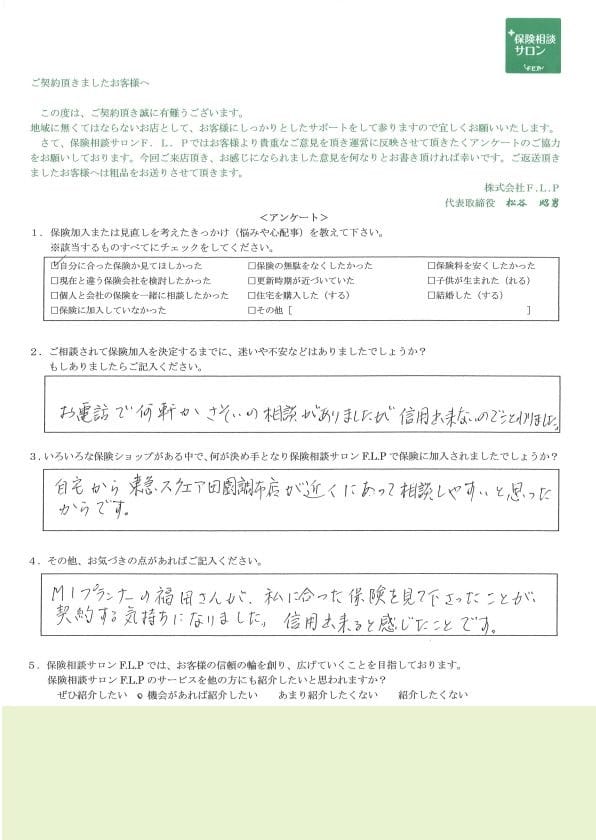 保険相談
サロン
F.L.P
ご契約頂きましたお客様へ
この度は、ご契約頂き誠に有難うございます。
地域に無くてはならないお店として、お客様にしっかりとしたサポートをして参りますので宜しくお願いいたします。
さて、保険相談サロンF．L．Pではお客様より貴重なご意見を頂き運営に反映させて頂きたくアンケートのご協力
をお願いしております。今回ご来店頂き、お感じになられました意見を何なりとお書き頂ければ幸いです。ご返送頂き
ましたお客様へは粗品をお送りさせて頂きます。
株式会社F.L.P
代表取締役 松谷 昭男
＜アンケート＞
１．保険加入または見直しを考えたきっかけ（悩みや心配事）を教えて下さい。
※該当するものすべてにチェックをしてください。
☑自分に合った保険か見てほしかった □保険の無駄をなくしたかった □保険料を安くしたかった
□現在と違う保険会社を検討したかった □更新時期が近づいていた □子供が生まれた（れる）
□個人と会社の保険を一緒に相談したかった □住宅を購入した（する） □結婚した（する）
□保険に加入していなかった □その他［ ］
２．ご相談されて保険加入を決定するまでに、迷いや不安などはありましたでしょうか？
もしありましたらご記入ください。
お電話で何軒かさそいの相談がありましたが信用出来ないのでことわりました。
３.いろいろな保険ショップがある中で、何が決め手となり保険相談サロンF.L.Pで保険に加入されましたでしょうか？
自宅から東急スクエア田園調布店が近くにあって相談しやすいと思った
からです。
４．その他、お気づきの点があればご記入ください。
M1プランナーの福田さんが、私に合った保険を見て下さったことが、
契約する気持ちになりました。信用出来ると感じたことです。
５．保険相談サロンF.L.Pでは、お客様の信頼の輪を創り、広げていくことを目指しております。
保険相談サロンF.L.Pのサービスを他の方にも紹介したいと思われますか？
ぜひ紹介したい 機会があれば紹介したい あまり紹介したくない 紹介したくない